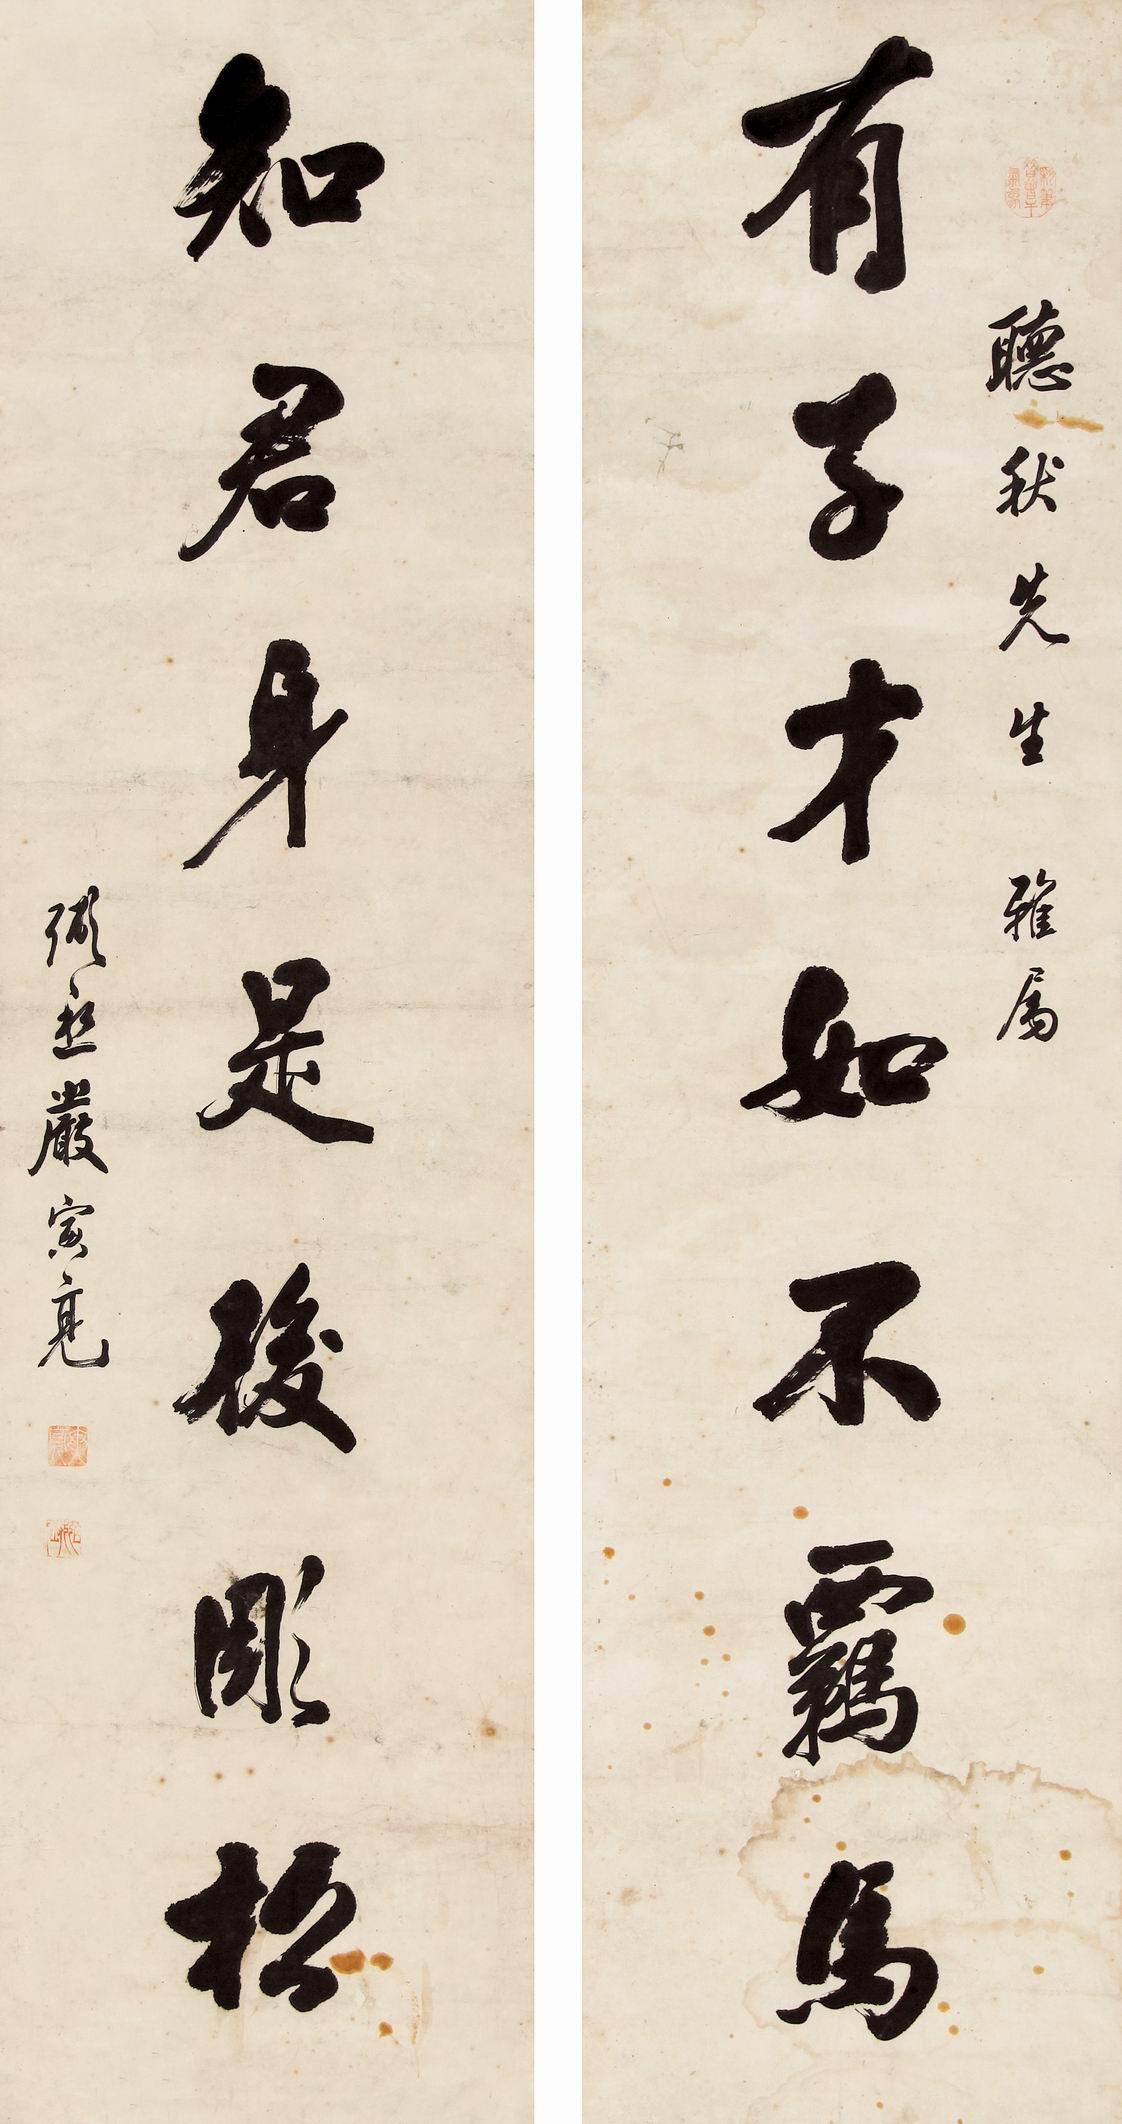 聽秋先生雅屬
有子才如不羈馬
知君身是後彫松
嚴寅亮